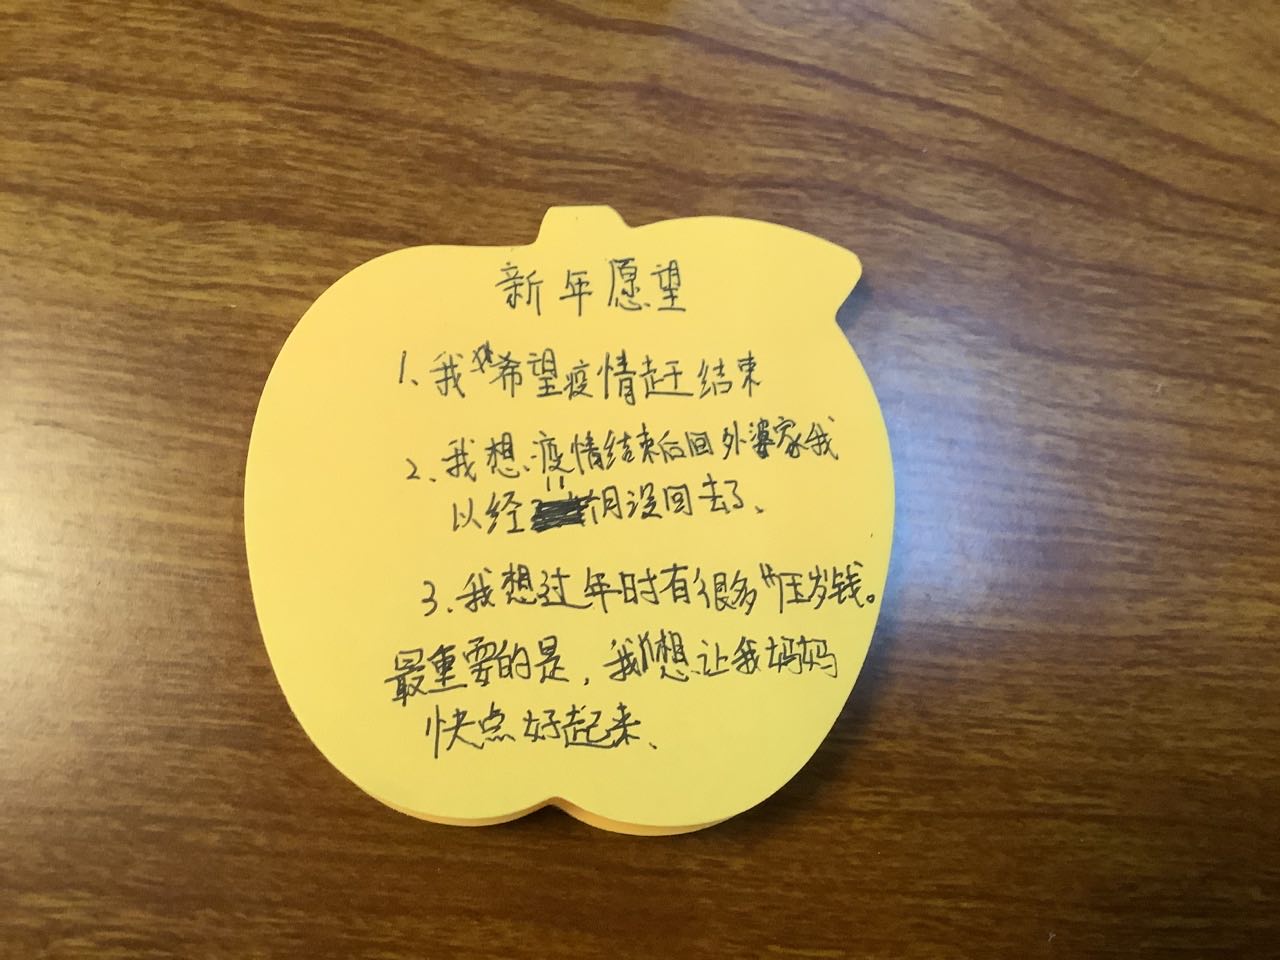 新年愿望
1、我希望疫情赶结束
2、我想、疫情结束后回外婆家我
以经六月没回去了、
3、我想过年时有很多压岁钱。
最重要的是，我想让我妈妈
快点好起来、